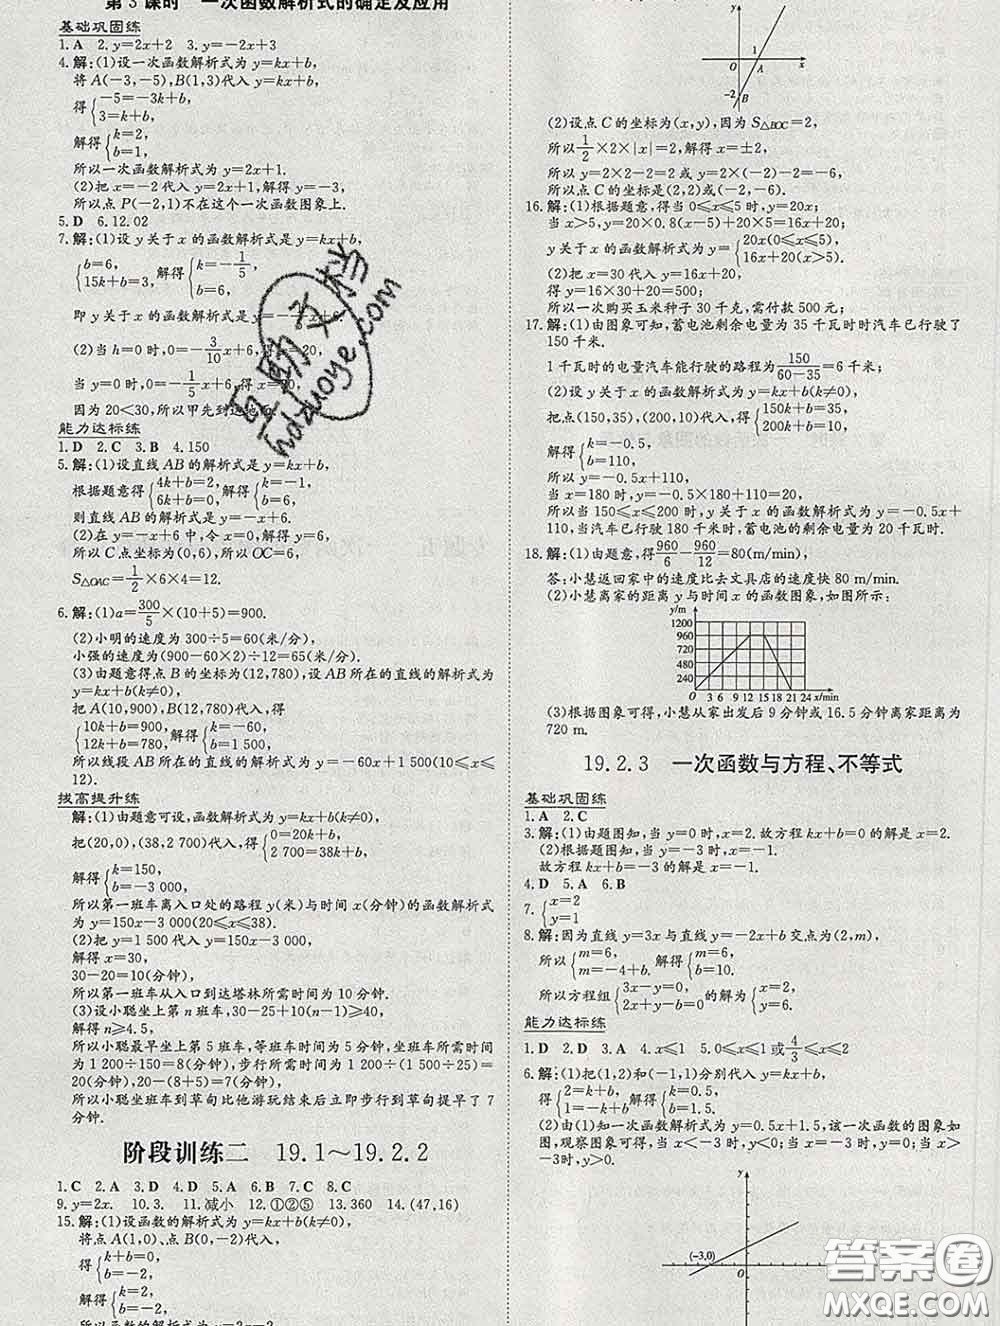 第3课时　一次函数解析式的确定及应用
基础巩固练
1.A　2.y=2x+2　3.y=-2x+3
4.解:(1)设一次函数解析式为 y=kx+b,
将 A(-3,-5),B(1,3)代入 y=kx+b,
得{-5=-3k+b,
3=k+b,
解得{k=2,
b=1,
所以一次函数解析式为 y=2x+1.
(2)把 x=-2 代入 y=2x+1,解得 y=-3,
所以点 P(-2,1)不在这个一次函数图象上.
5.D　6.12.02
7.解:(1)设 y 关于 x 的函数解析式是 y=kx+b,
{b=6,
15k+b=3, 解得{k=-1/5,
b=6,
即 y 关于 x 的函数解析式是 y=-1/5x+6.
(2)当 h=0 时,0=-3/10x+6,得 x=20,
当 y=0 时,0=-1/5x+6,得 x=30,
因为 20<30,所以甲先到达地面.
能力达标练
1.D　2.C　3.B　4.150
5.解:(1)设直线 AB 的解析式是 y=kx+b,
根据题意得{4k+b=2,
6k+b=0, 解得{k=-1,
b=6,
则直线 AB 的解析式为 y=-x+6.
(2)在 y=-x+6 中,令 x=0,解得 y=6,
所以 C 点坐标为(0,6),所以 OC=6,
S△OAC=1/2×6×4=12.
6.解:(1)a=300/5×(10+5)=900.
(2)小明的速度为 300÷5=60(米/分),
小强的速度为(900-60×2)÷12=65(米/分).
(3)由题意得点 B 的坐标为(12,780),设 AB 所在的直线的解析式为
y=kx+b(k≠0),
把 A(10,900),B(12,780)代入,得
{10k+b=900,
12k+b=780, 解得{k=-60,
b=1 500,
所以线段 AB 所在的直线的解析式为 y=-60x+1 500(10≤x≤
12).
拔高提升练
解:(1)由题意可设,函数解析式为 y=kx+b(k≠0),
把(20,0),(38,2 700)代入,得{0=20k+b,
2 700=38k+b,
解得{k=150,
b=-3 000,
所以第一班车离入口处的路程 y(米)与时间 x(分钟)的函数解析式
为 y=150x-3 000(20≤x≤38).
(2)把 y=1 500代入 y=150x-3 000,
解得 x=30,
30-20=10(分钟),
所以第一班车从入口到达塔林所需时间为 10 分钟.
(3)设小聪坐上第 n 班车,30-25+10(n-1)≥40,
解得 n≥4.5,
所以小聪最早坐上第 5 班车,等班车时间为 5 分钟,坐班车所需时间
为 1 200÷150=8(分钟),步行所需时间为 1 200÷(1 500÷25)=
20(分钟),20-(8+5)=7(分钟),
所以小聪坐班车到草甸比他游玩结束后立即步行到草甸提早了 7
分钟.
阶段训练二　19.1～19.2.2
1.C　2.C　3.A　4.D　5.A　6.B　7.C　8.C
9.y=2x.　10.3.　11.减小　12.①②⑤　13.360　14.(47,16)
15.解:(1)设函数的解析式为 y=kx+b(k≠0),
将点 A(1,0)、点 B(0,-2)代入,
得{k+b=0,
b=-2,
解得{k=2,
b=-2,
所以函数的解析式为 y=2x-2.
y
O　1　A　x
-2　B
(2)设点 C 的坐标为(x,y),因为 S△BOC=2,
所以1/2×2×|x|=2,解得 x=±2,
所以 y=2×2-2=2 或 y=2×(-2)-2=-6.
所以点 C 的坐标是(2,2)或(-2,-6).
16.解:(1)根据题意,得当 0≤x≤5 时,y=20x;
当 x>5,y=20×0.8(x-5)+20×5=16x+20,
y 关于 x 的函数解析式为 y={20x(0≤x≤5),
16x+20(x>5).
(2)把 x=30 代入 y=16x+20,
得 y=16×30+20=500;
所以一次购买玉米种子 30 千克,需付款 500 元;
17.解:(1)由图象可知,蓄电池剩余电量为 35 千瓦时时汽车已行驶了
150 千米.
1 千瓦时的电量汽车能行驶的路程为150/(60-35)=6(千米).
(2)设 y 关于 x 的函数解析式为 y=kx+b(k≠0),
把点(150,35),(200,10)代入,得{150k+b=35,
200k+b=10,
解得{k=-0.5,
b=110,
所以 y=-0.5x+110.
当 x=180 时,y=-0.5×180+110=20,
所以当 150≤x≤200 时,y 关于 x 的函数解析式为 y=-0.5x+
110,当汽车已行驶 180 千米时,蓄电池的剩余电量为 20 千瓦时.
18.解:(1)由题意可得,960/6-960/12=80(m/min),
答:小慧返回家中的速度比去文具店的速度快 80 m/min.
(2)小慧离家的距离 y 与时间 x 的函数图象,如图所示:
y/m
1200
960
720
480
240
0　3　6　9　12　15　18　21　24　x/min
(3)根据图象可得,小慧从家出发后 9 分钟或 16.5 分钟离家距离为
720 m.
19.2.3　一次函数与方程、不等式
基础巩固练
1.A　2.C
3.解:(1)由题图知,当 y=0 时,x=2.故方程 kx+b=0 的解是 x=2.
(2)根据题图知,当 y=-3 时,x=-1.
故方程 kx+b=-3 的解是 x=-1.
4.D　5.A　6.B
7.{x=2
y=1
8.解:因为直线 y=3x 与直线 y=-2x+b 交点为(2,m),
所以{m=6,
m=-4+b. 解得{m=6,
b=10.
所以方程组{3x-y=0,
2x+y-b=0 的解为{x=2,
y=6.
能力达标练
1.D　2.D　3.A　4.x≤1　5.0≤x≤1 或4/3≤x≤2
6.解:(1)把(1,2)和(-1,1)分别代入 y=kx+b,
得{2=k+b,
1=-k+b, 解得{k=0.5,
b=1.5.
(2)由(1)知一次函数解析式为 y=0.5x+1.5,该一次函数的图象如
图,观察图象可得,当 x<-3 时,y<0;当 x=-3 时,y=0;当 x>-3
时,y>0.
y
(-3,0)
O
互助文档
hdzuoye.com
答案圈
MXQE.COM